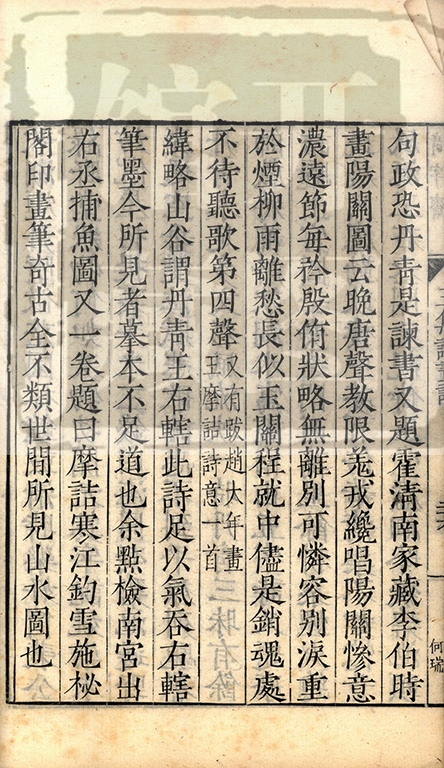 句政恐丹青是諫書又題霍淸南家藏李伯時
畫陽關圖云晚唐聲教限羌戎纔唱陽關慘意
濃遠節每矜殷侑狀略無離別可憐容別淚重
於煙柳雨離愁長似玉關程就中儘是銷魂處
不待聽歌第四聲又有跋趙大年畫
王摩詰詩意一首
緯略山谷謂丹靑王右轄此詩足以氣吞右轄
筆墨今所見者摹本不足道也余點檢南宮出
右丞捕魚圖又一卷題曰摩詰寒江釣雪施秘
閣印畫筆奇古全不類世間所見山水圖也
何瑞